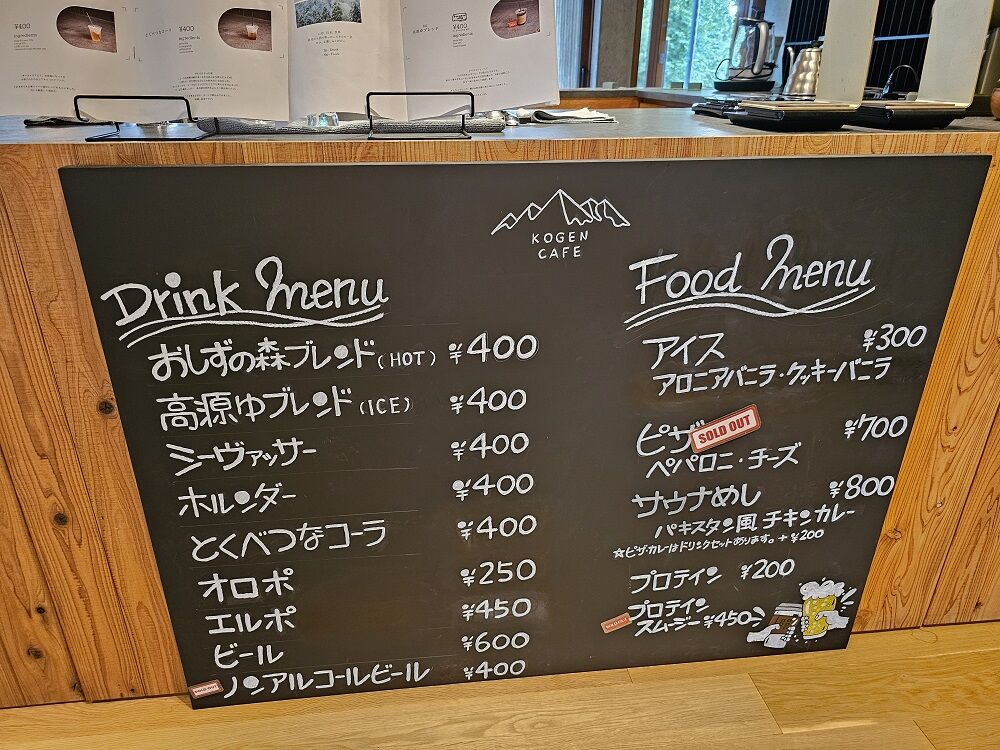 ¥400
ingredients
¥400
ingredients
¥400
KOGEN
CAFE
Drink Menu
おしずの森ブレンド(HOT) ¥400
高原ゆブレンド(ICE) ¥400
シーヴァッサー ¥400
ホルンダー ¥400
とくべつなコーラ ¥400
オロポ ¥250
エルポ ¥450
ビール ¥600
SOLD OUT ノンアルコールビール ¥400
Food Menu
アイス ¥300
アロニアバニラ・クッキーバニラ
ピザ SOLD OUT ¥700
ペパロニ・チーズ
サウナめし ¥800
パキスタン風 チキンカレー
☆ピザ・カレーはドリンクセットあります。+¥200
プロテイン ¥200
SOLD OUT プロテイン
スムージー ¥450